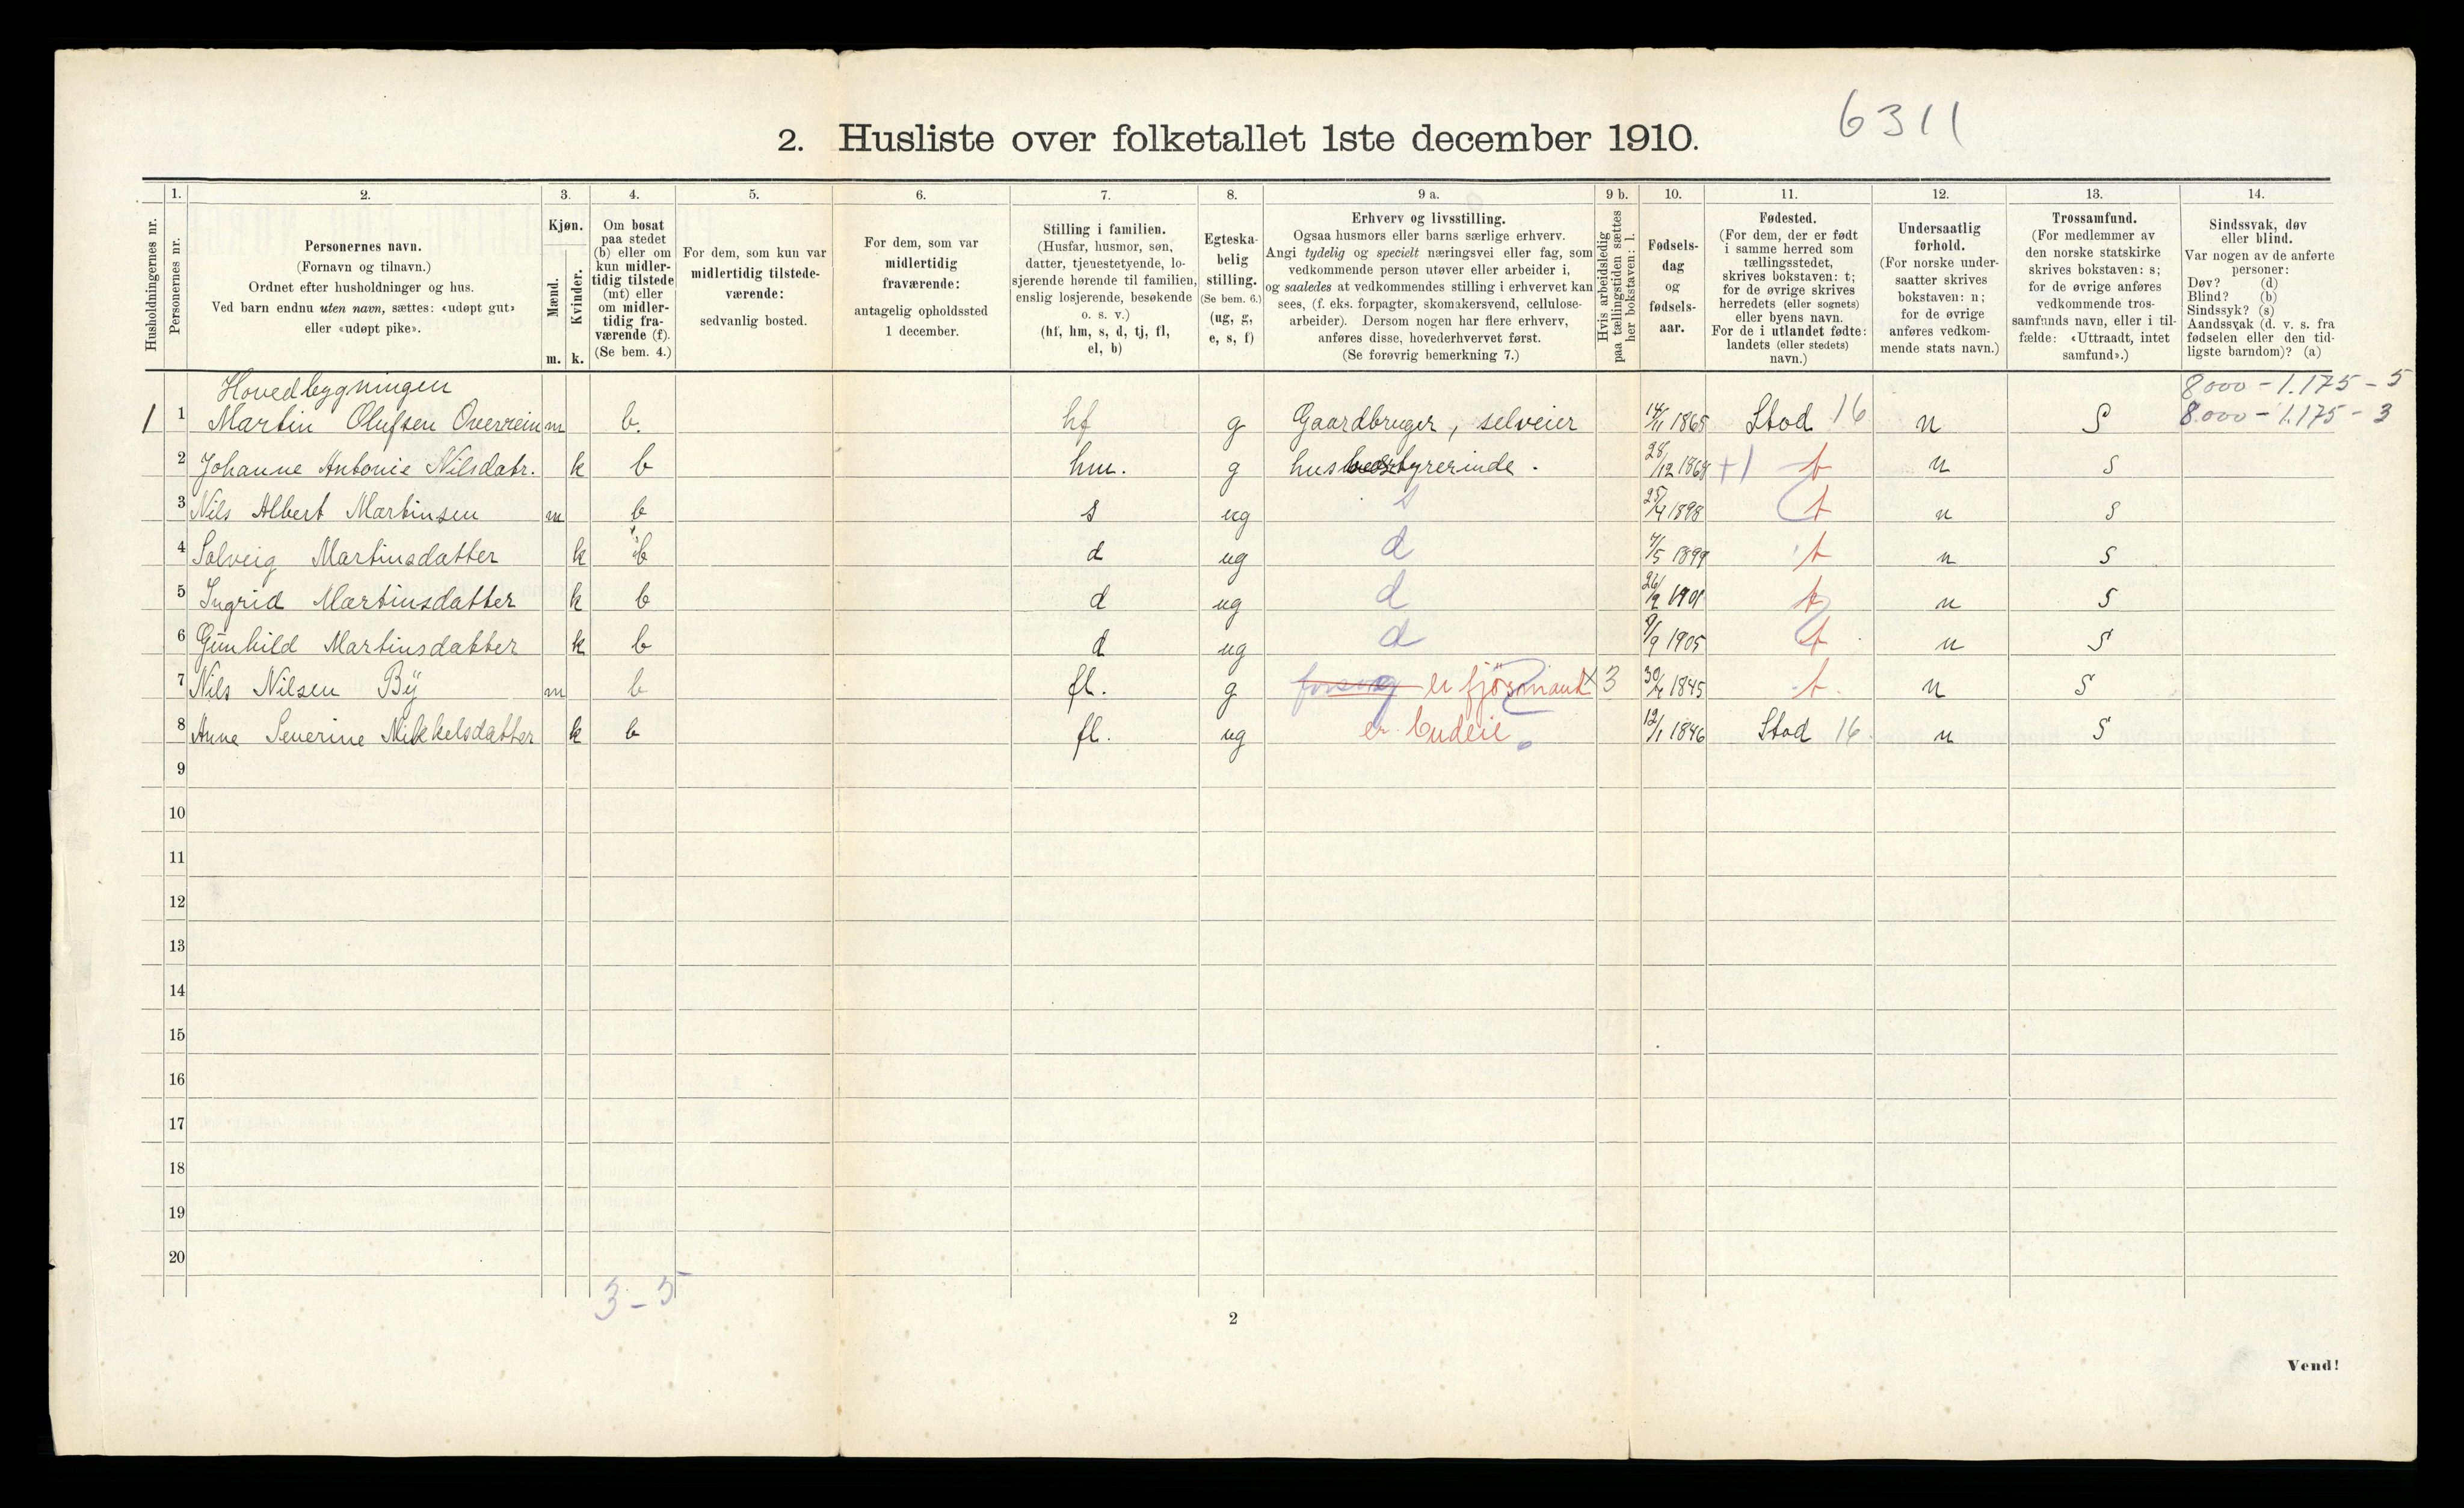 6311
2. Husliste over folketallet 1ste december 1910.
1. 2. 3. 4. 5. 6. 7. 8. 9 a. 9 b. 10. 11. 12. 13. 14.
Husholdningernes nr.
Personernes nr.
Personernes navn.
(Fornavn og tilnavn.)
Ordnet efter husholdninger og hus.
Ved barn endnu uten navn, sættes: «udøpt gut»
eller «udøpt pike».
Kjøn.
Mænd.
Kvinder.
m. k.
Om bosat
paa stedet
(b) eller om
kun midler-
tidig tilstede
(mt) eller
om midler-
tidig fra-
værende (f).
(Se bem. 4.)
For dem, som kun var
midlertidig tilstede-
værende:
sedvanlig bosted.
For dem, som var
midlertidig
fraværende:
antagelig opholdssted
1 december.
Stilling i familien.
(Husfar, husmor, søn,
datter, tjenestetyende, lo-
sjerende hørende til familien,
enslig losjerende, besøkende
o. s. v.)
(hf, hm, s, d, tj, fl,
el, b)
Egteska-
belig
stilling.
(Se bem. 6.)
(ug, g,
e, s, f)
Erhverv og livsstilling.
Ogsaa husmors eller barns særlige erhverv.
Angi tydelig og specielt næringsvei eller fag, som
vedkommende person utøver eller arbeider i,
og saaledes at vedkommendes stilling i erhvervet kan
sees, (f. eks. forpagter, skomakersvend, cellulose-
arbeider). Dersom nogen har flere erhverv,
anføres disse, hovederhvervet først.
(Se forøvrig bemerkning 7.)
Hvis arbeidsledig
paa tællingstiden sættes
her bokstaven: l.
Fødsels-
dag
og
fødsels-
aar.
Fødested.
(For dem, der er født
i samme herred som
tællingsstedet,
skrives bokstaven: t;
for de øvrige skrives
herredets (eller sognets)
eller byens navn.
For de i utlandet fødte:
landets (eller stedets)
navn.)
Undersaatlig
forhold.
(For norske under-
saatter skrives
bokstaven: n;
for de øvrige
anføres vedkom-
mende stats navn.)
Trossamfund.
(For medlemmer av
den norske statskirke
skrives bokstaven: s;
for de øvrige anføres
vedkommende tros-
samfunds navn, eller i til-
fælde: «Uttraadt, intet
samfund».)
Sindssvak, døv
eller blind.
Var nogen av de anførte
personer:
Døv? (d)
Blind? (b)
Sindssyk? (s)
Aandssvak (d. v. s. fra
fødselen eller den tid-
ligste barndom)? (a)
Hovedbygningen 8000 - 1.175 - 5
1 1 Martin Olufsen Overrein m b. hf g Gaardbruger, selveier 14/11 1865 Stod 16 n S 8000 - 1.175 - 3
2 Johanne Antonie Nilsdatr. k b hm. g husbestyrerinde. 28/12 1868 +1 t n s
3 Nils Albert Martinsen m b s ug s 1898 t n s
4 Solveig Martinsdatter k b d ug d 4/5 1899 t n s
5 Ingrid Martinsdatter k b d ug d 1901 t n s
6 Gunhild Martinsdatter k b d ug d 9/9 1905 t n s
7 Nils Nilsen By m b fl. g er fjösmand x 3 1845 t. n S
8 Anne Severine Mikkelsdatter k b fl. ug er budeie 12/1 1846 Stod 16 n S
9
10
11
12
13
14
15
16
17
18
19
20
3 - 5
2
Vend!